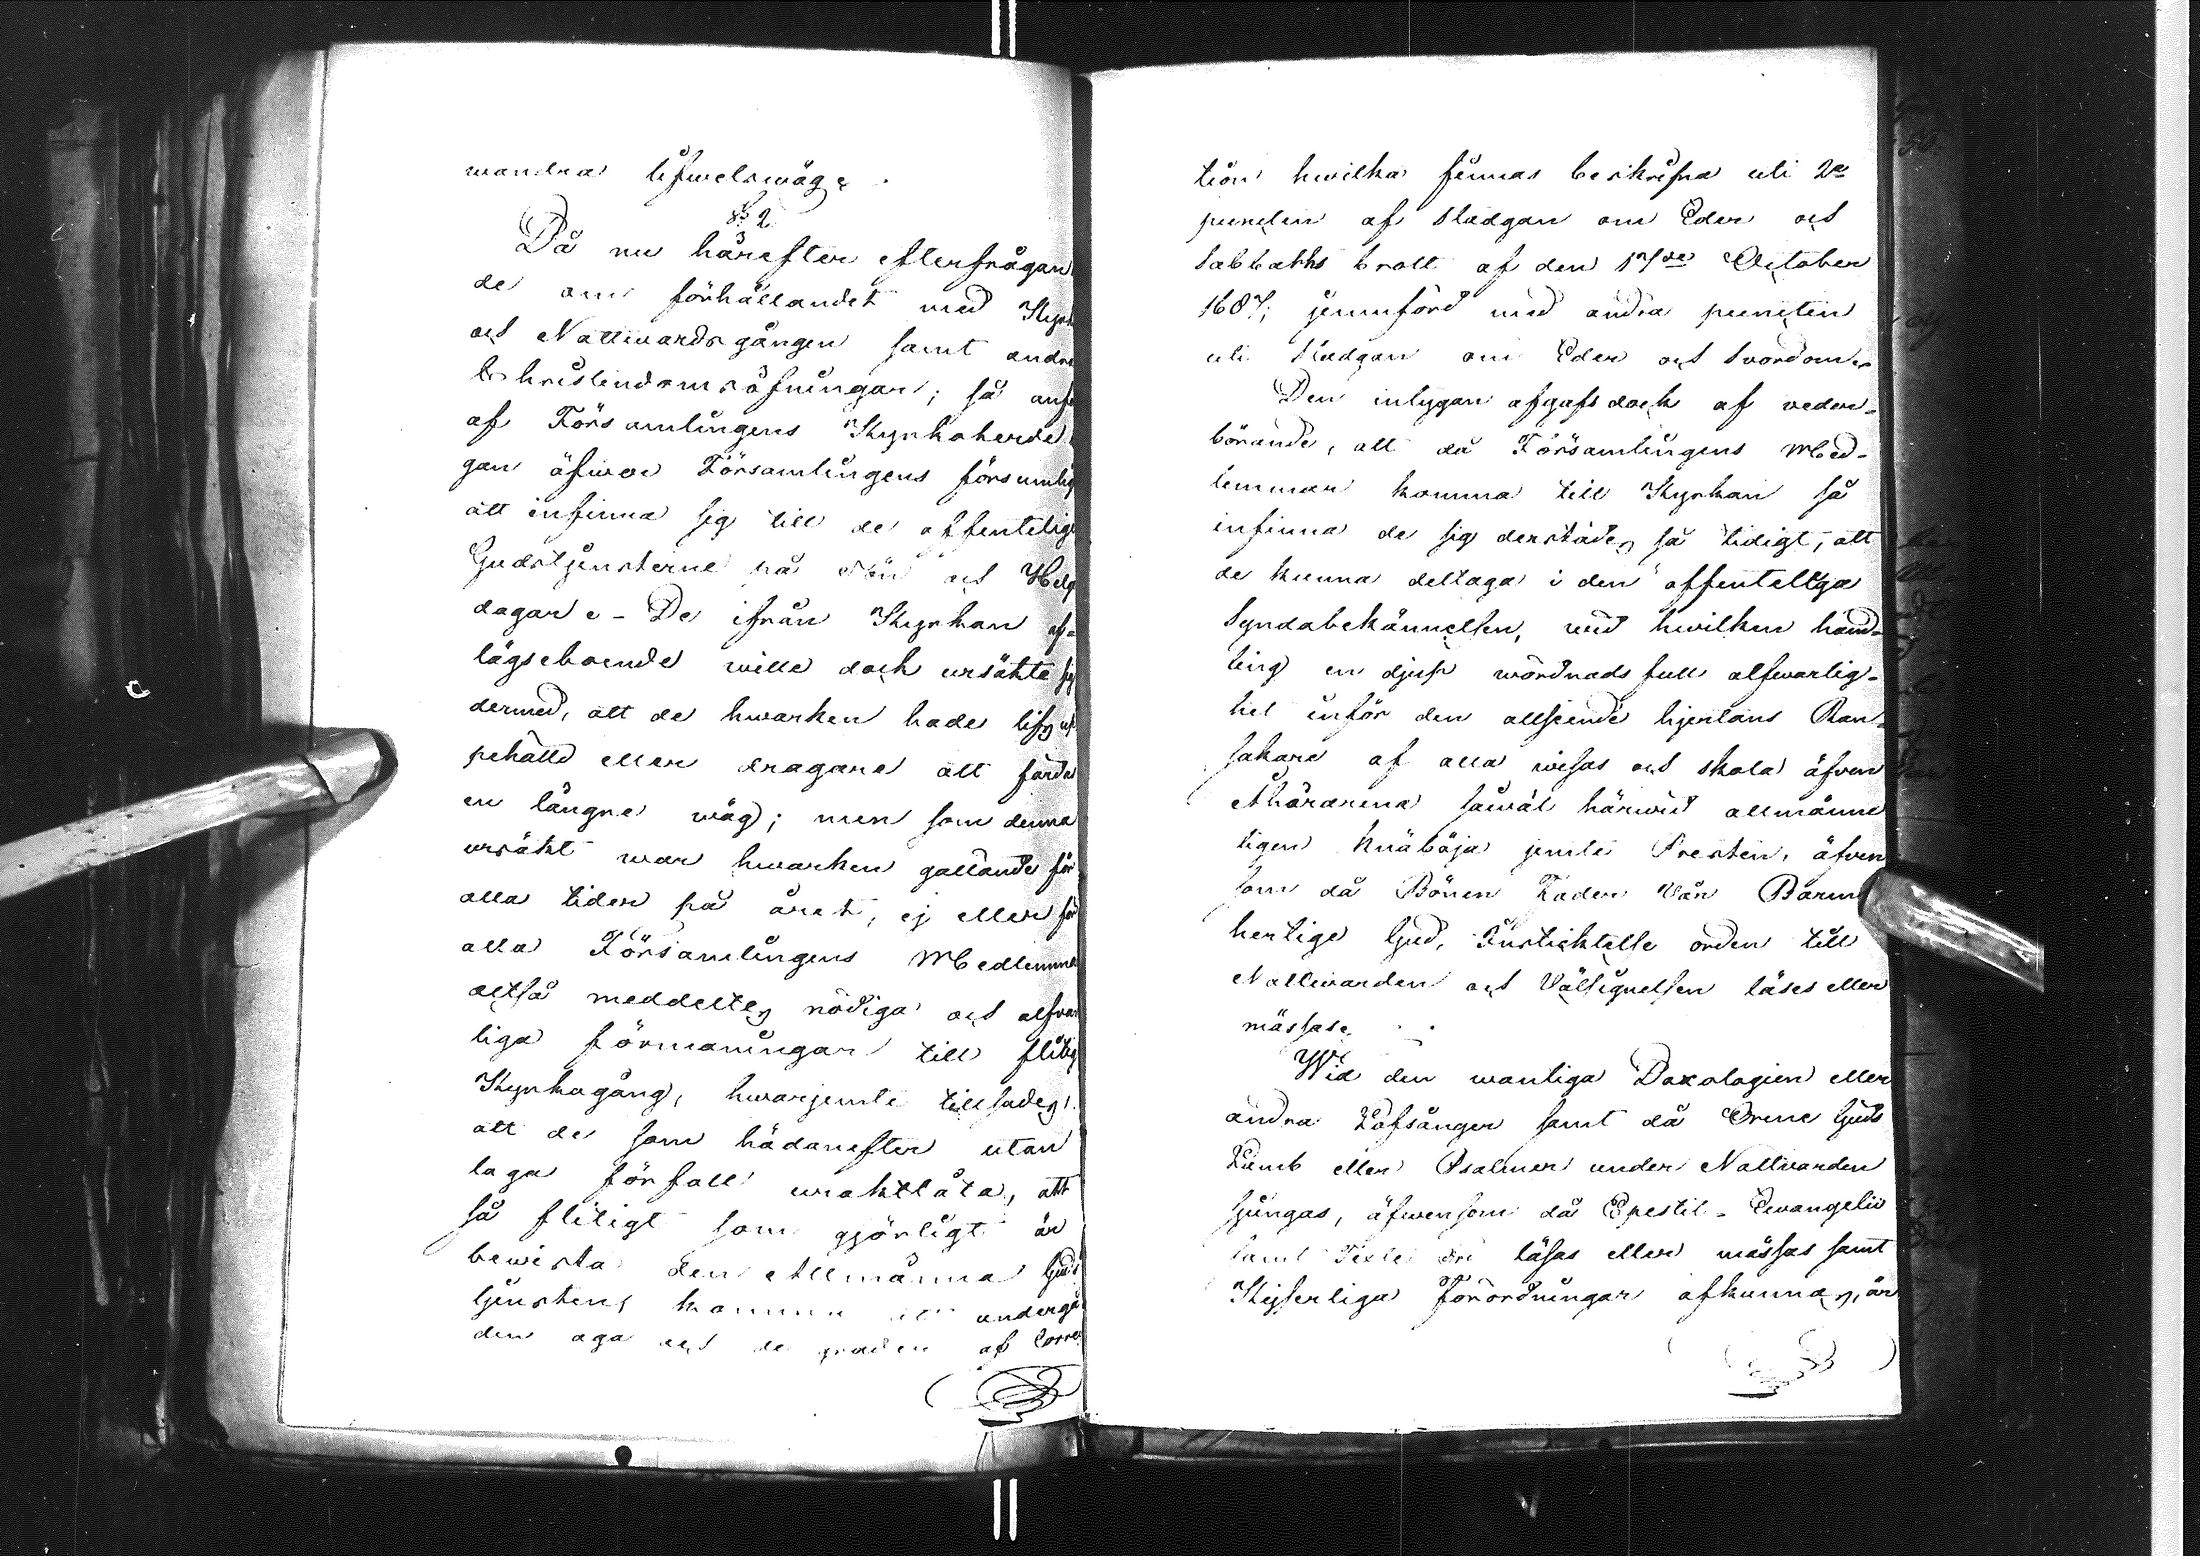 wandra lifwetswäg.
§ 2
Då nu härefter efterfrågan
de om förhållandet med Kyrk
och Nattwardsgången samt andra
christendomsöfningar; så
af Församlingens Kyrkoherde
gan öfwer Församlingens försumlig
att infinna sig till de offentelig
Gudstjensterne på Sön och Helg
dagar. De ifrån Kyrkan af-
lägseboende wille dock ursäkta sig
dermed, att de hwarken hade lifs up
pehälld eller dragare att färdas
en längre wäg; men som denna
ursäkt war hwarken gällande för
alla tider på året, ej eller för
alla Församlingens Medlemmar
altså meddeltes nödiga och alfvar
liga förmaningar till flitig
Kyrkogång, hwarjemte tillsades,
att de som hädanefter utan
laga förfall uraktlåta, att
så flitigt som gjörligt är
bewista den Allmänna Guds
tjensten, komma att undergå
den aga och de graden af Corre
tion hwilka finnas beskrifna uti 2a
puncten af stadgan om Eder och
sabbaths brott af den 17de October
1687; jemnförd med andra puncten
uti Stadgan om Eder och svordom.
Den intygan afgafs dock af veder-
börande, att då Församlingens Med-
lemmar komma till Kyrkan så
infinna de sig derstädes så tidigt, att
de kunna deltaga i den offentelíga
Syndabekännelsen, wid hwilken hand-
ling en djup wördnadsfull alfwarlig-
het inför den allseende hjertans Ran-
sakare af alla wisas och skola äfven
Åhörarena såwäl härwid allmänne
ligen knäböja jemte Presten, äfven
som då Bönen Fader Vår Barm
hertige Gud, Insticktelse orden till
Nattwarden och Välsignelsen läses eller
mässas.
Wid den wanliga Doxologien eller
andra Lofsånger samt då Orene Guds
Lamb eller Psalmer under Nattvarden
sjungas, äfwensom då Epistil- Ewangelii
samt Texte läsas eller mässas samt
Kejserliga Förordningar afkunnas, är